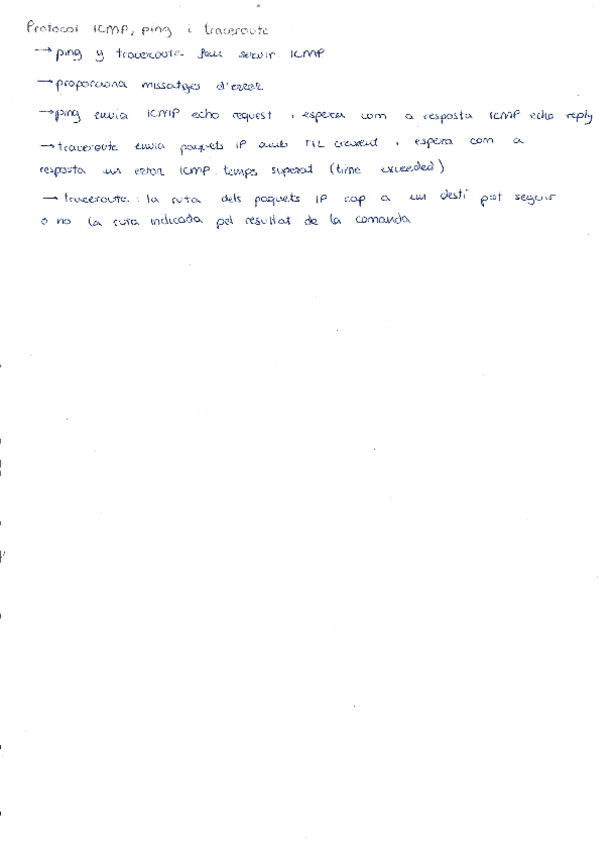 Protocol ICMP, ping i traceroute
→ ping y traceroute fan servir ICMP
→ proporciona missatges d'error
→ ping envia ICMP echo request i espera com a resposta ICMP echo reply
→ traceroute envia paquets IP amb TTL creixent i espera com a
resposta un error ICMP temps superat (time exceeded)
→ traceroute: la ruta dels paquets IP cap a un destí pot seguir
o no la ruta indicada pel resultat de la comanda